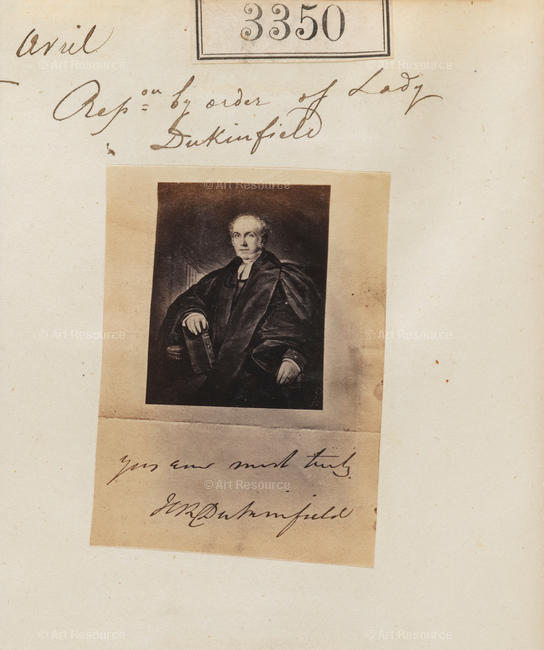 3350
Avril
Resp^on by order of Lady
Dukinfield
yrs ever most truly
H R Dukinfield
© Art Resource
© Art Resource
© Art Resource
© Art Resource
© Art Resource
© Art Resource
© Art Resource
© Art Resource